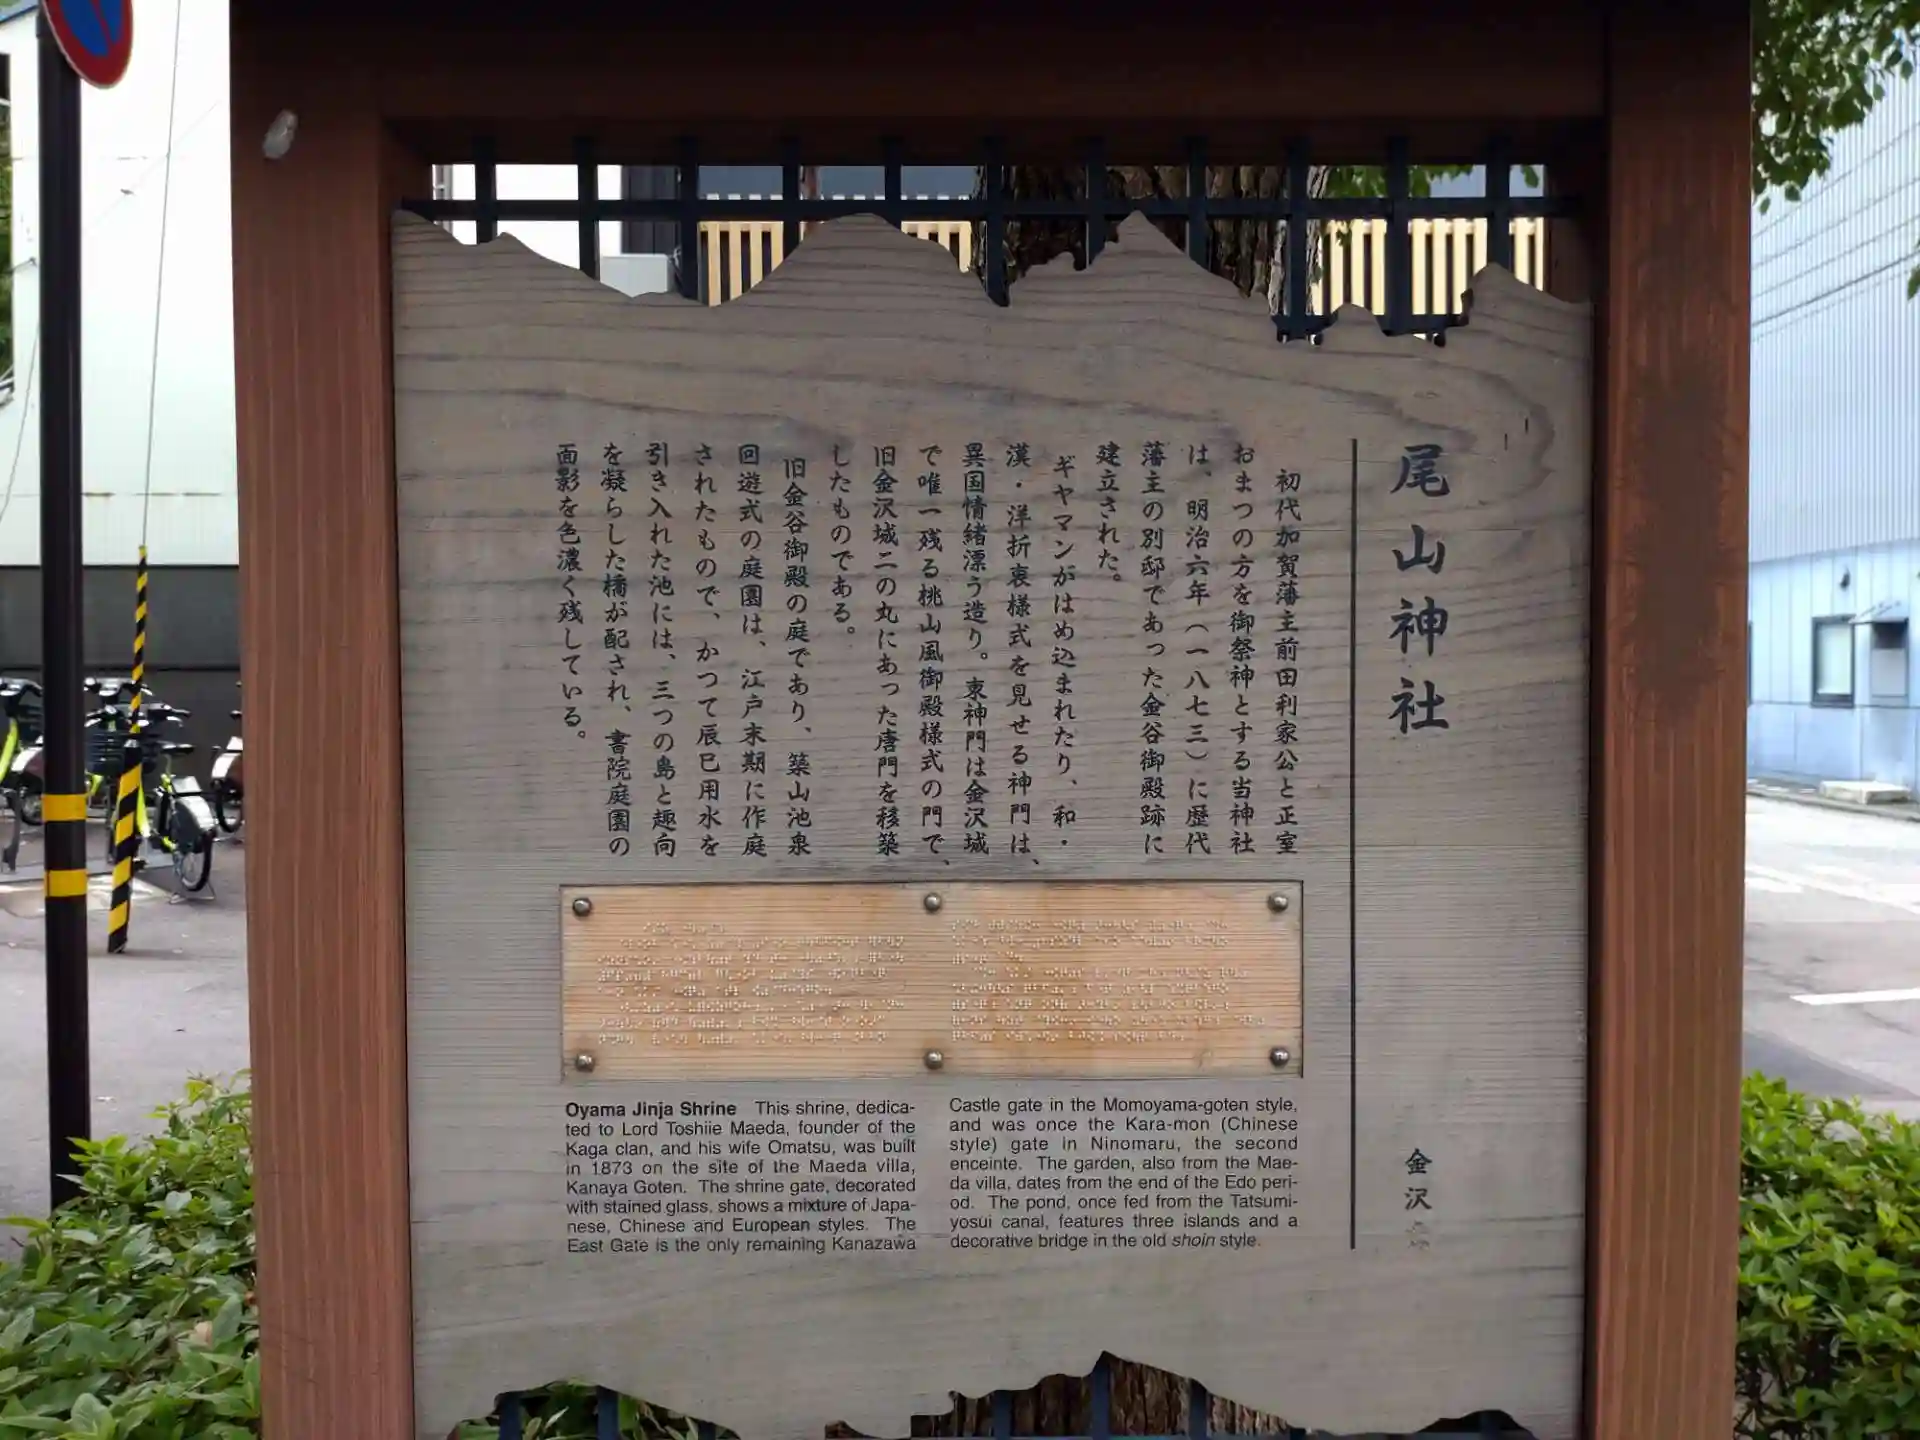 尾山神社
初代加賀藩主前田利家公と正室
おまつの方を御祭神とする当神社
は、明治六年（一八七三）に歴代
藩主の別邸であった金谷御殿跡に
建立された。
ギヤマンがはめ込まれたり、和・
漢・洋折衷様式を見せる神門は、
異国情緒漂う造り。東神門は金沢城
で唯一残る桃山風御殿様式の門で、
旧金沢城二の丸にあった唐門を移築
したものである。
旧金谷御殿の庭であり、築山池泉
回遊式の庭園は、江戸末期に作庭
されたもので、かつて辰巳用水を
引き入れた池には、三つの島と趣向
を凝らした橋が配され、書院庭園の
面影を色濃く残している。
金沢
Oyama Jinja Shrine This shrine, dedica-
ted to Lord Toshiie Maeda, founder of the
Kaga clan, and his wife Omatsu, was built
in 1873 on the site of the Maeda villa,
Kanaya Goten. The shrine gate, decorated
with stained glass, shows a mixture of Japa-
nese, Chinese and European styles. The
East Gate is the only remaining Kanazawa
Castle gate in the Momoyama-goten style,
and was once the Kara-mon (Chinese
style) gate in Ninomaru, the second
enceinte. The garden, also from the Mae-
da villa, dates from the end of the Edo peri-
od. The pond, once fed from the Tatsumi-
yosui canal, features three islands and a
decorative bridge in the old shoin style.